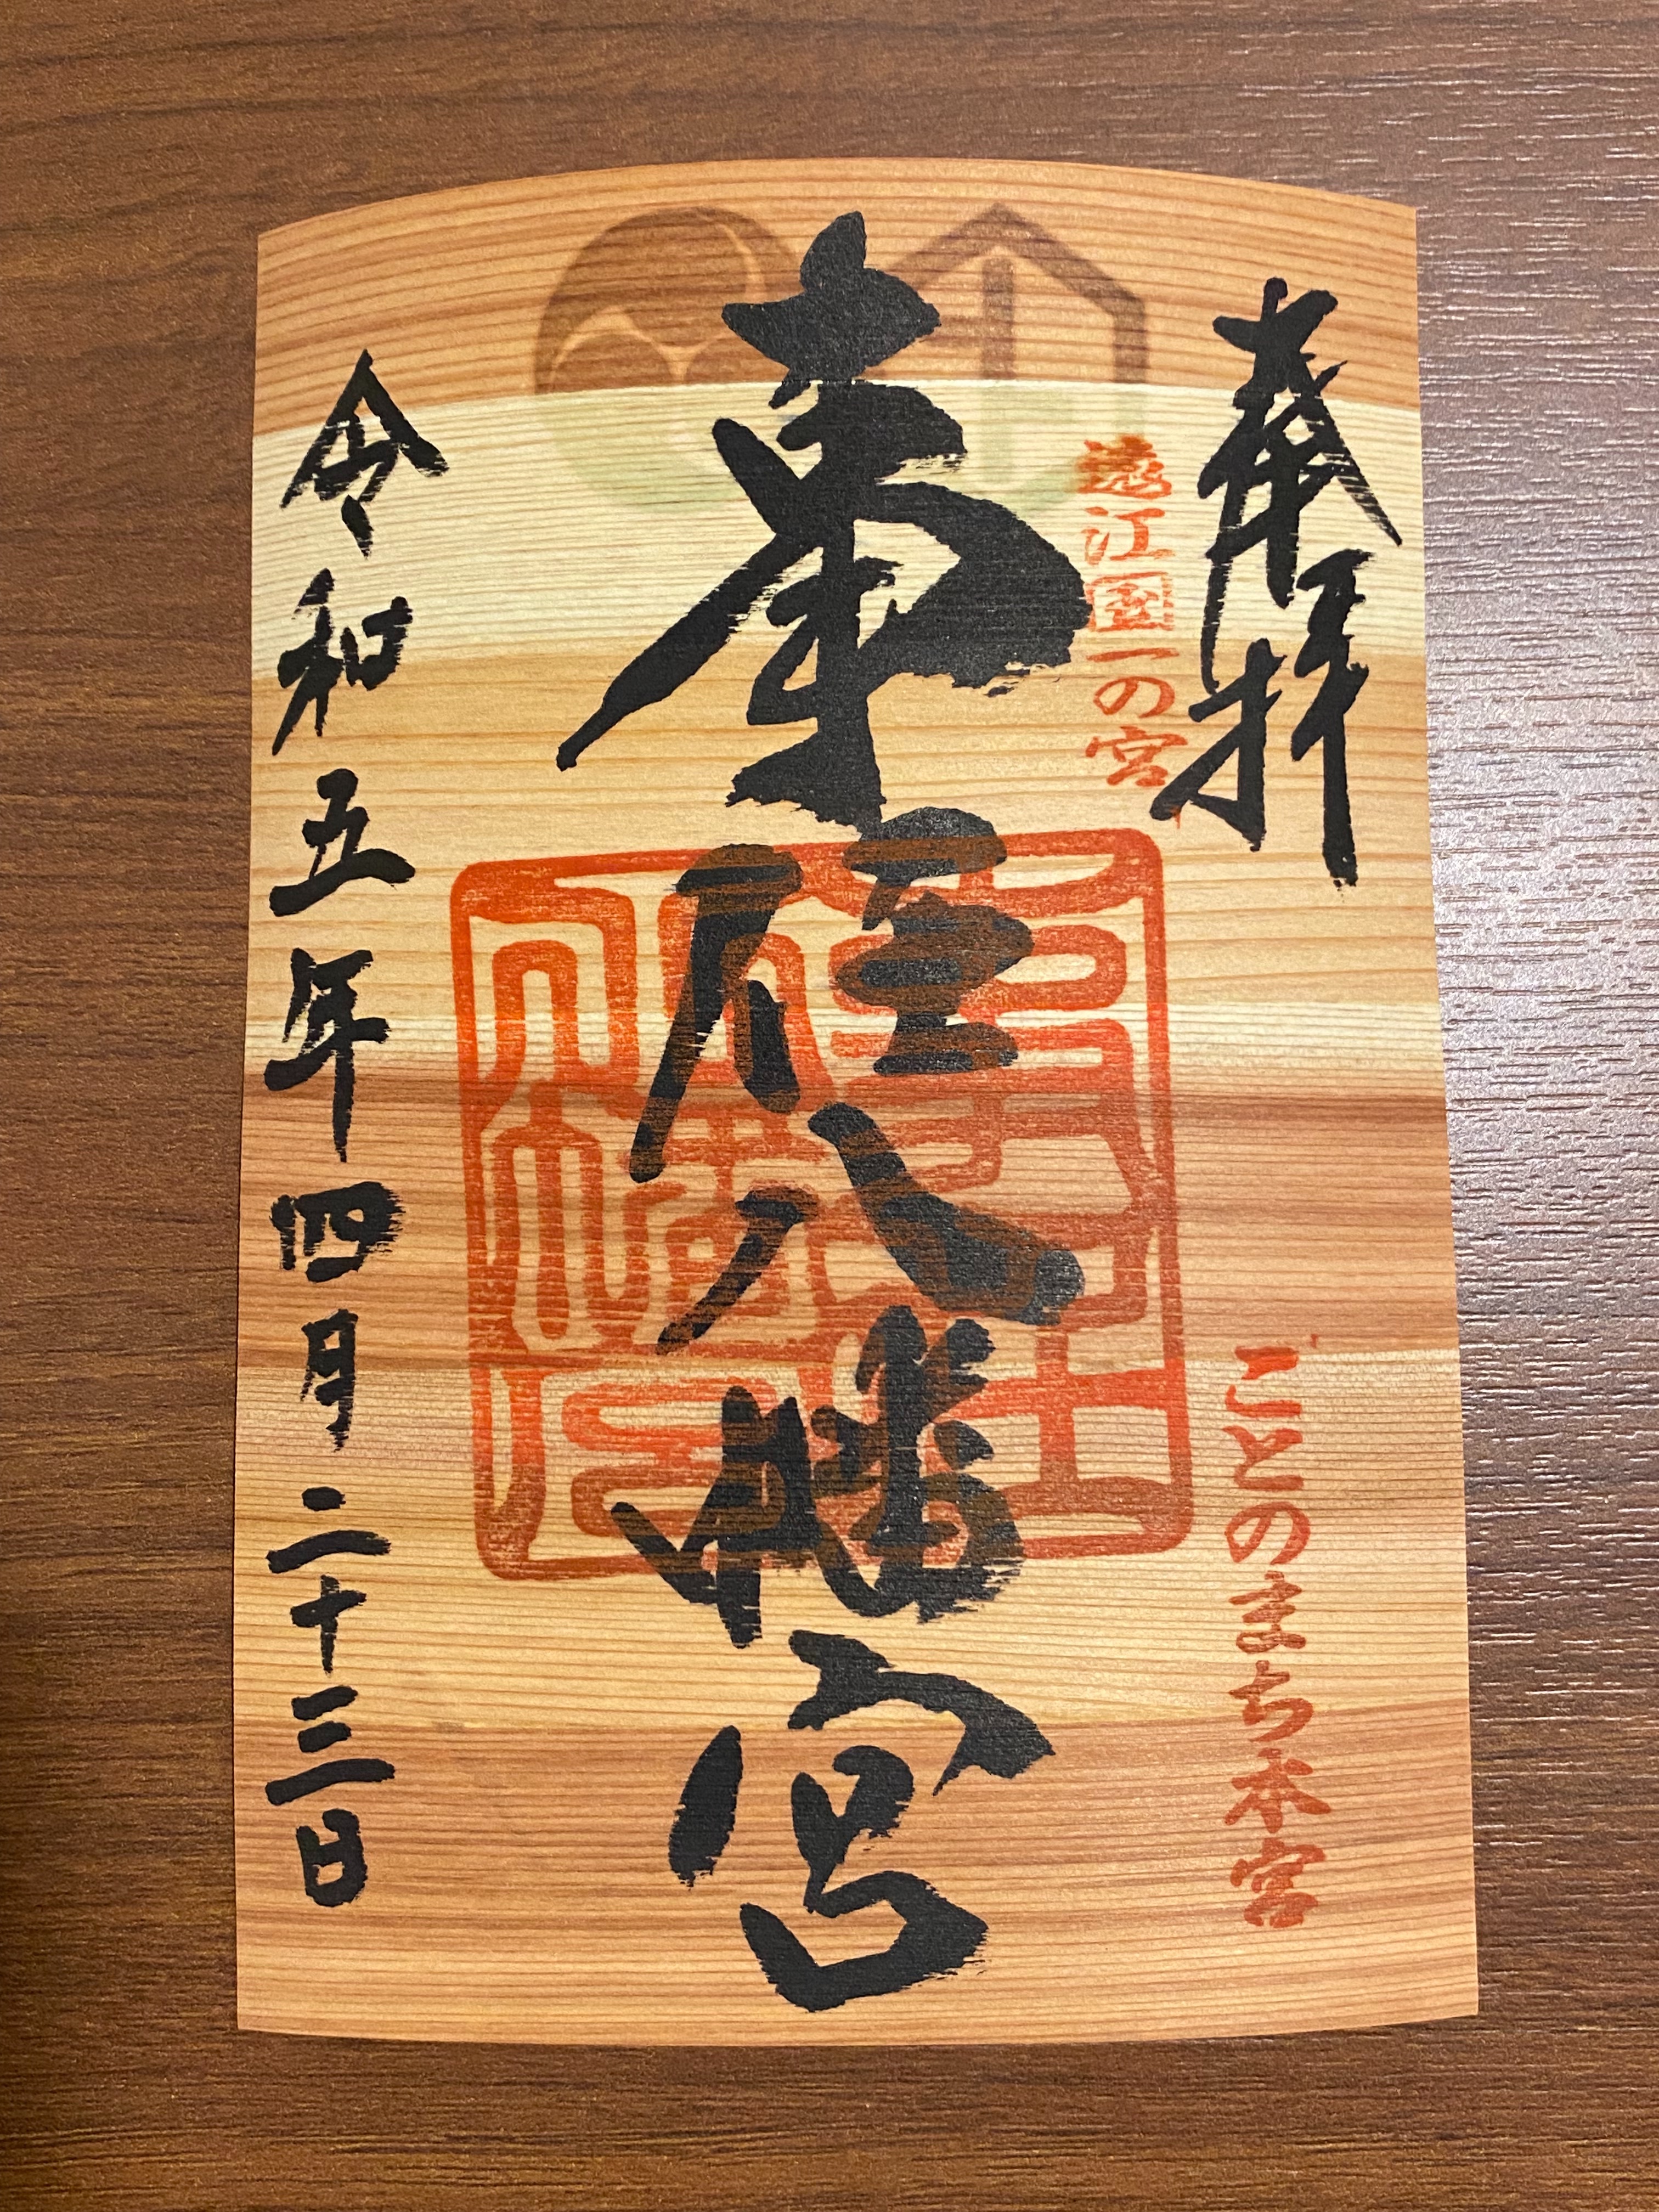 奉拝
遠江國一の宮
ことのまち本宮
事任八幡宮
令和五年四月二十三日